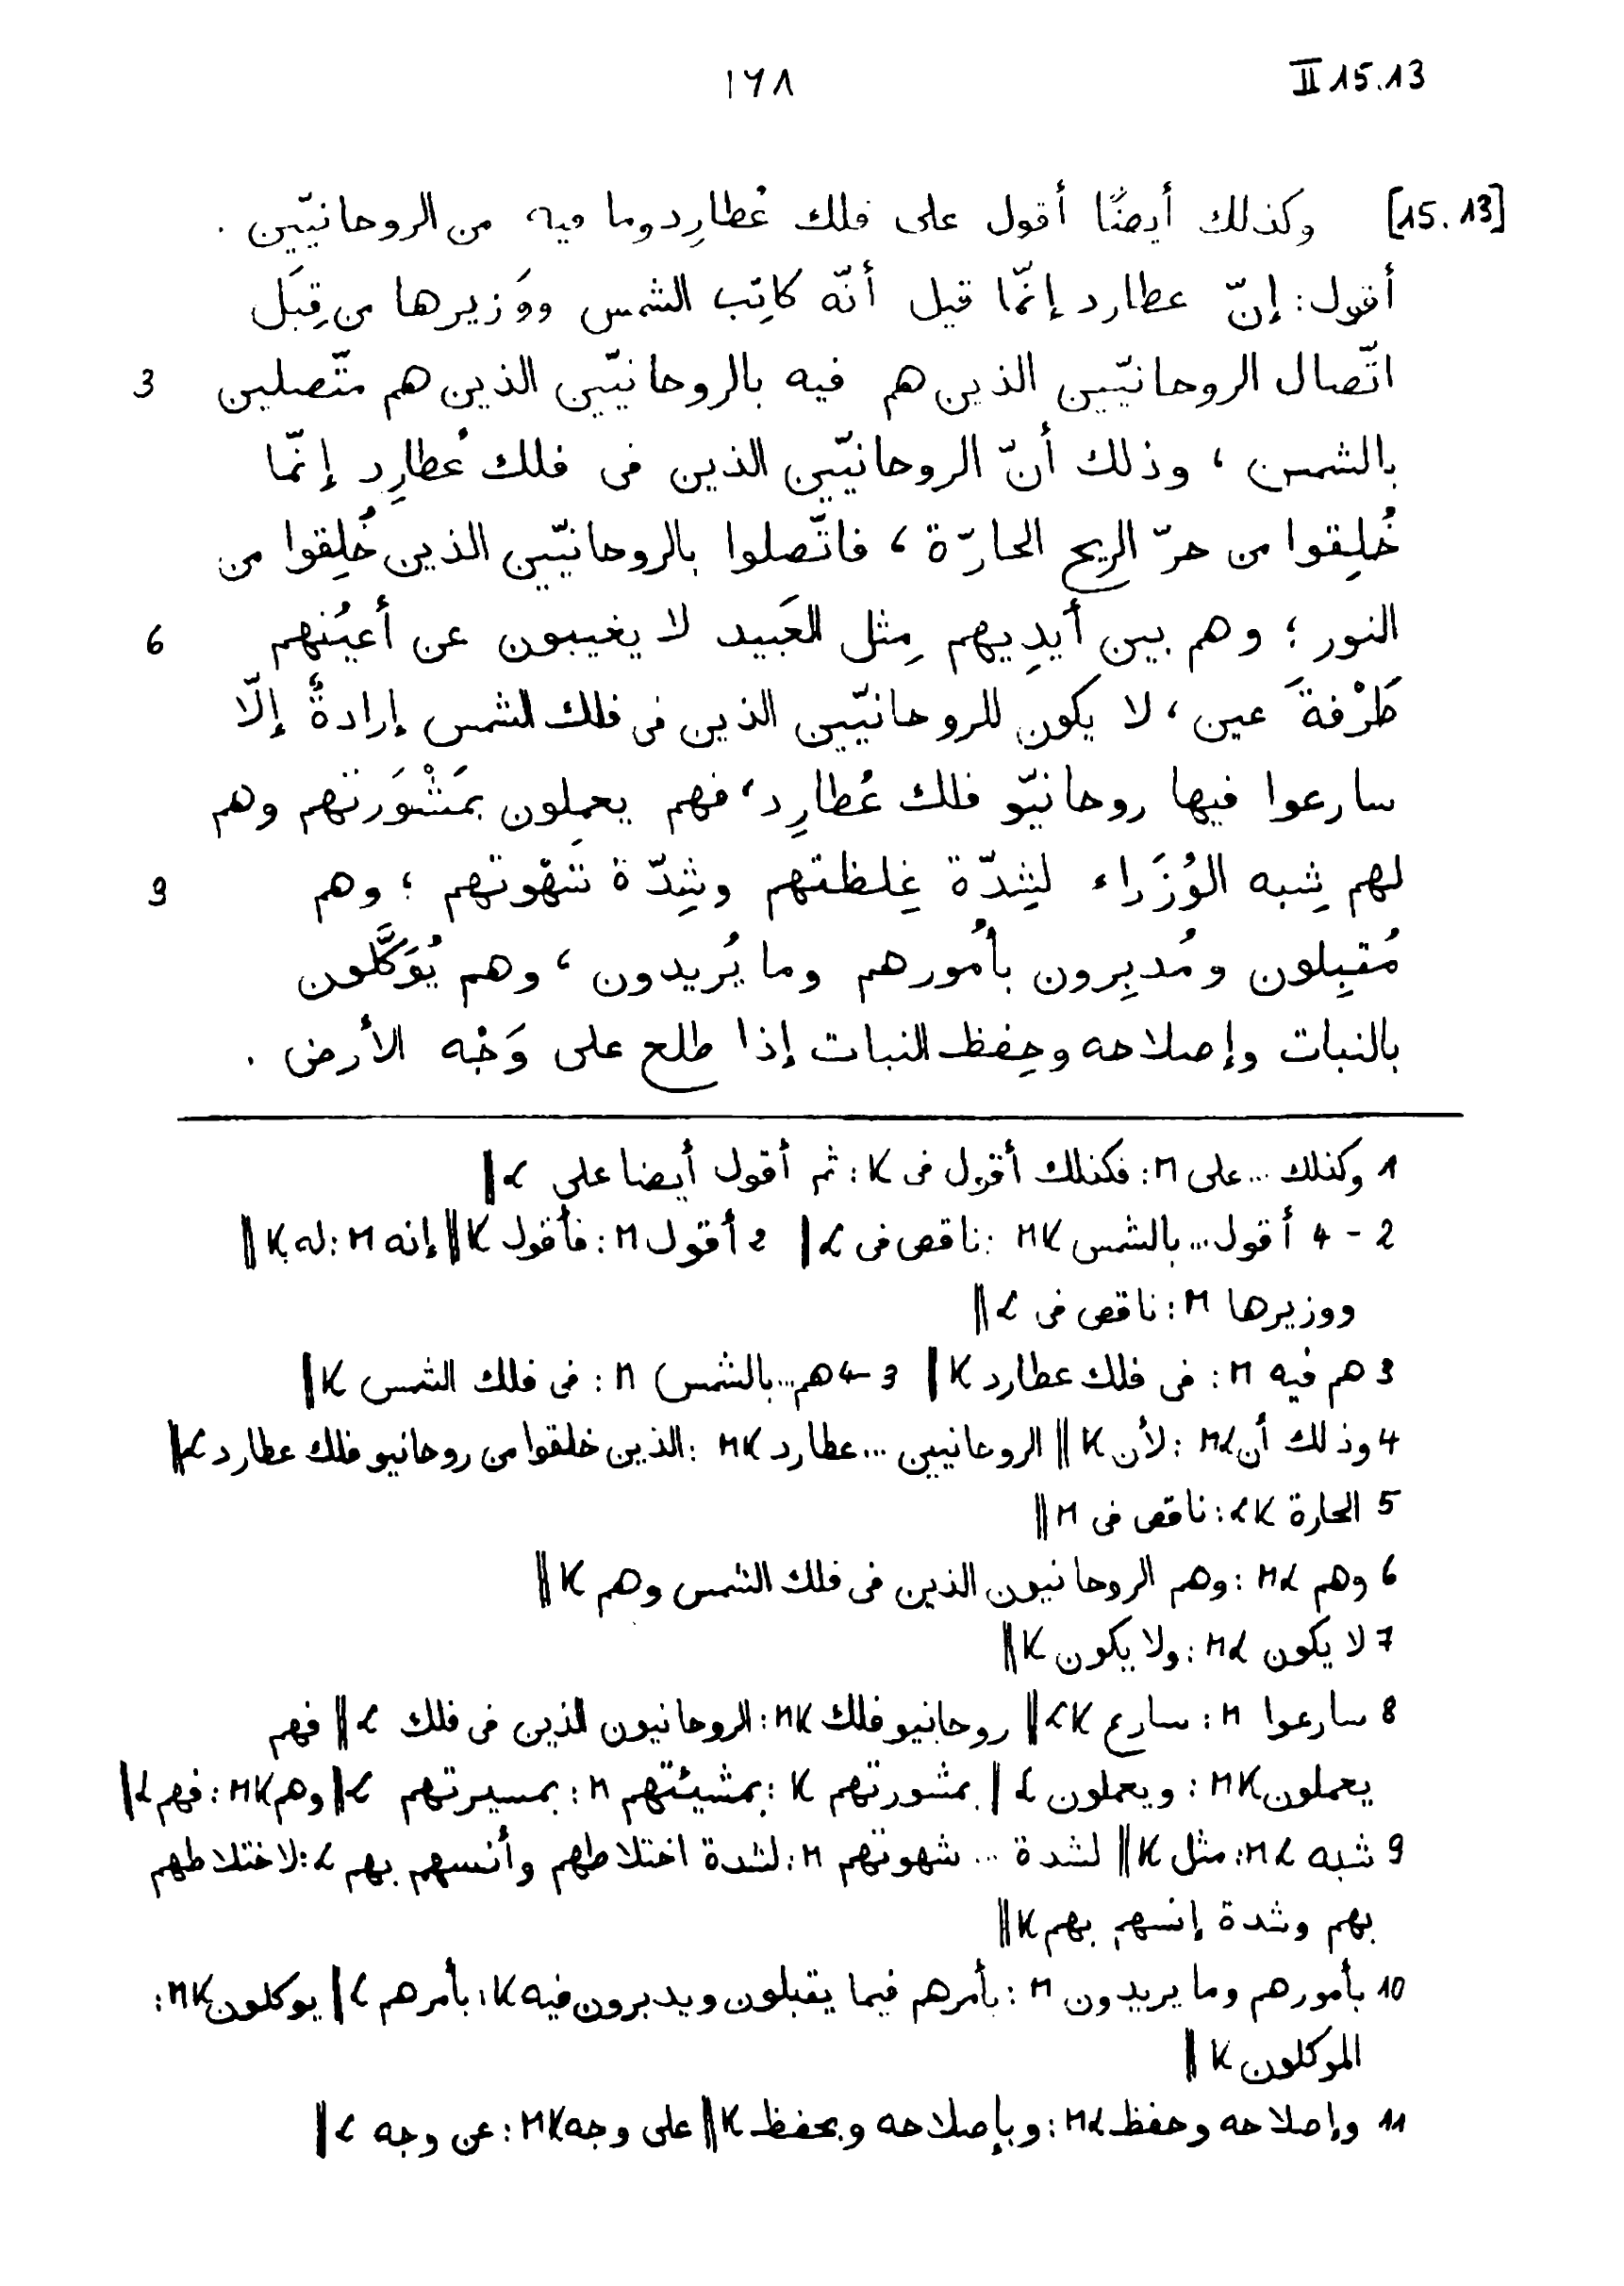 II 15.13 ١٦٨
[15.13] وكذلك أيضًا أقول على فلك عُطارِد وما فيه من الروحانيّين .
أقول : إنّ عطارد إنّما قيل أنّه كاتِب الشمس ووَزيرها من قِبَل
اتّصال الروحانيّين الذين هم فيه بالروحانيّين الذين هم متّصلين 3
بالشمس ، وذلك أنّ الروحانيّين الذين فى فلك عُطارِد إنّما
خُلِقوا من حرّ الريح الحارّة ، فاتّصلوا بالروحانيّين الذين خُلِقوا من
النور ؛ وهم بين أيدِيهم مِثل العَبيد لا يغيبون عن أعيُنهم 6
طَرْفةَ عين ، لا يكون للروحانيّين الذين فى فلك الشمس إرادةٌ إلّا
سارعوا فيها روحانيّو فلك عُطارِد ، فهم يعملون بمَشْوَرتهم وهم
لهم شِبه الوُزَراء لشِدّة غِلظتهم وشِدّة شَهْوتهم ؛ وهم 9
مُقبِلون ومُدبِرون بأُمورهم وما يُريدون ، وهم يُوَكَّلون
بالنبات وإصلاحه وحِفظ النبات إذا طلع على وَجْه الأرض .
1 وكذلك ... على M : فكذلك أقول فى K : ثم أقول أيضا على L ||
2 - 4 أقول ... بالشمس MK : ناقص فى L || 2 أقول M : فأقول K || إنه M : له K ||
ووزيرها M : ناقص فى L ||
3 هم فيه M : فى فلك عطارد K || 3-4 هم ... بالشمس M : فى فلك الشمس K ||
4 وذلك أن ML : لأن K || الروحانيين ... عطارد MK : الذين خلقوا من روحانيو فلك عطارد L ||
5 الحارة LK : ناقص فى M ||
6 وهم ML : وهم الروحانيون الذين فى فلك الشمس وهم K ||
7 لا يكون ML : ولا يكون K ||
8 سارعوا M : سارع LK || روحانيو فلك MK : الروحانيون الذين فى فلك L || فهم
يعملون MK : ويعملون L || بمشورتهم K : بمشيئتهم M : بمسيرتهم L || وهم MK : فهم L ||
9 شبه ML : مثل K || لشدة ... شهوتهم M : لشدة اختلاطهم وأنسهم بهم L : لاختلاطهم
بهم وشدة إنسهم بهم K ||
10 بأمورهم وما يريدون M : بأمرهم فيما يقبلون ويدبرون فيه K : بأمرهم L || يوكلون MK :
الموكلون K ||
11 وإصلاحه وحفظ ML : وبإصلاحه وبحفظ K || على وجه MK : عن وجه L ||